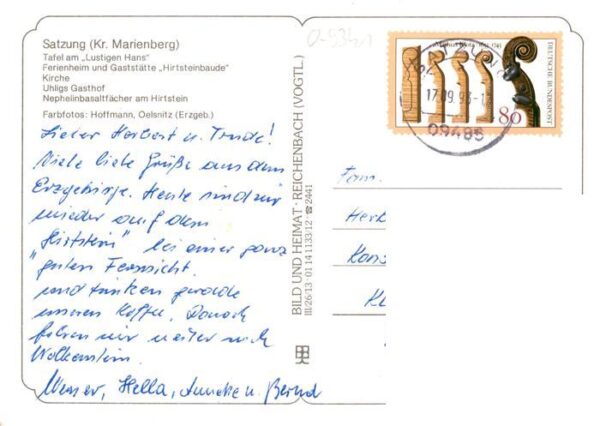 Satzung (Kr. Marienberg)
Tafel am „Lustigen Hans"
Ferienheim und Gaststätte „Hirtsteinbaude"
Kirche
Uhligs Gasthof
Nephelinbasaltfächer am Hirtstein
Farbfotos: Hoffmann, Oelsnitz (Erzgeb.)
Lieber Herbert u. Trude!
Viele liebe Grüße aus dem
Erzgebirge. Heute sind wir
wieder auf dem
"Hirtstein" bei einer ganz
guten Fernsicht
und trinken gerade
unseren Kaffee. Danach
fahren wir weiter nach
Wolkenstein.
Werner, Hella, u. Bernd
BILD UND HEIMAT · REICHENBACH (VOGTL.)
III/26/13 01 14 1133 12 ☎ 2441
DEUTSCHE BUNDESPOST
80
17.09.93
09485
Fam.
Her
Kons
K